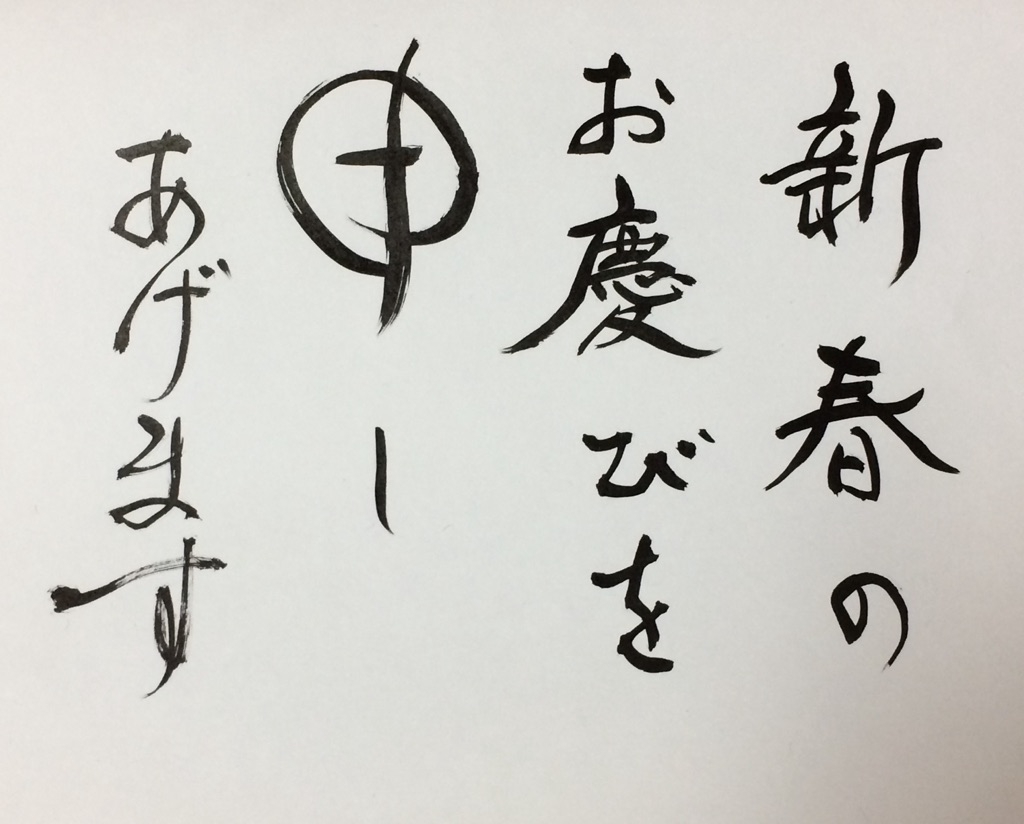 新春の
お慶びを
申し
あげます